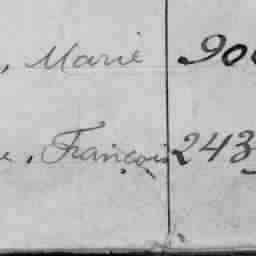 , Marie 900
e, François 243